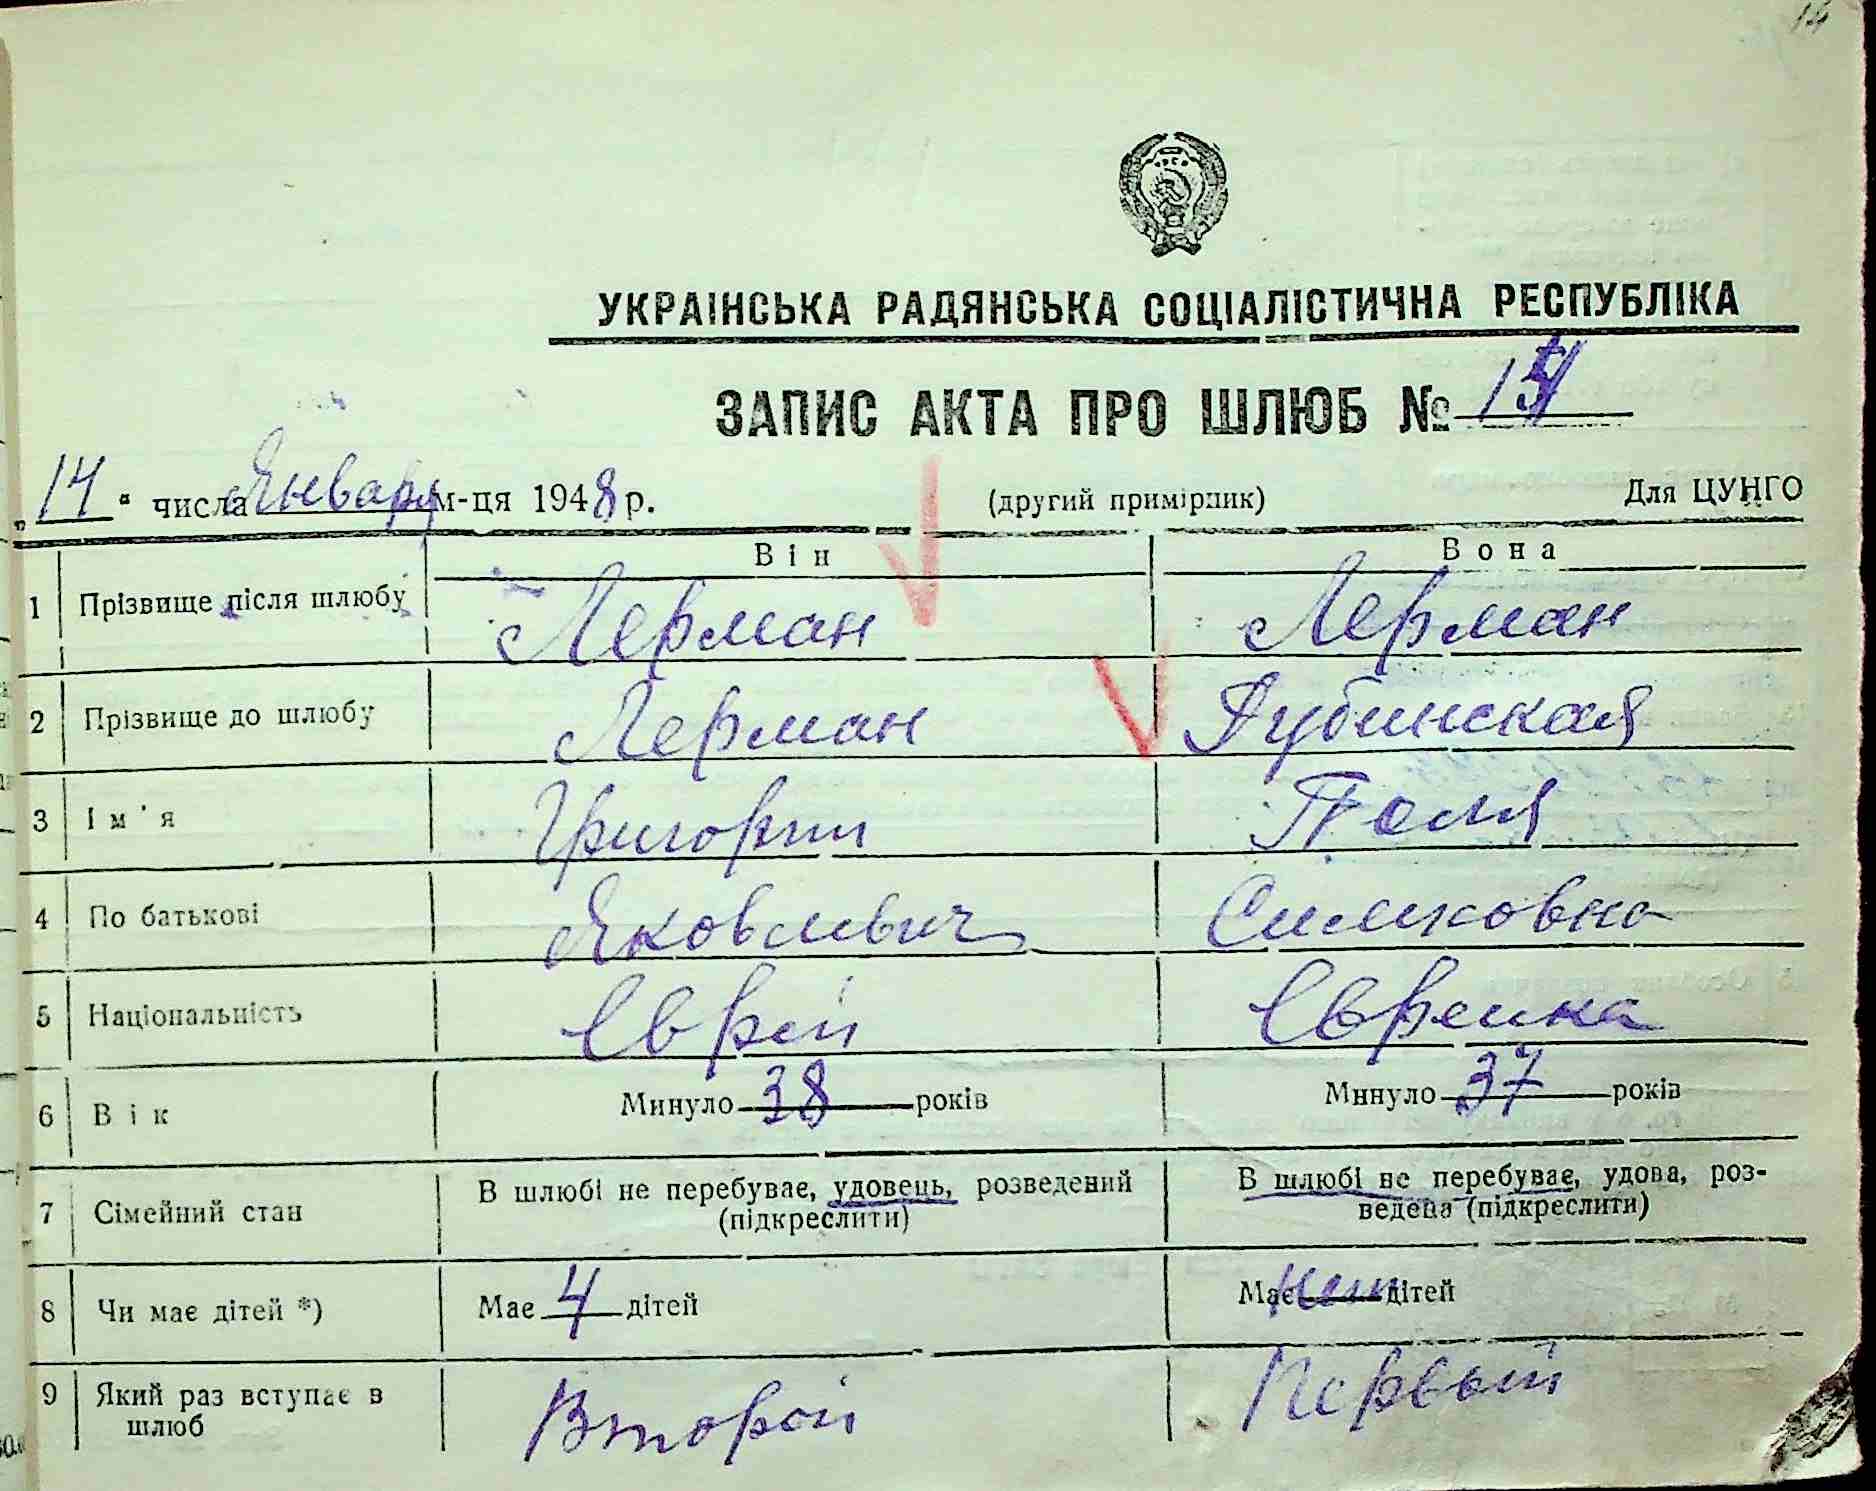 14
УКРАІНСЬКА РАДЯНСЬКА СОЦІАЛІСТИЧНА РЕСПУБЛІКА
ЗАПИС АКТА ПРО ШЛЮБ №
„14" числа Января м-ця 1948 р. (другий примірник) Для ЦУНГО
Він Вона
1 Прізвище після шлюбу Лерман Лерман
2 Прізвище до шлюбу Лерман Дубинская
3 Ім'я Григорий Поля
4 По батькові Яковлевич Симховна
5 Національність Еврей Еврейка
6 Вік Минуло 38 років Минуло 37 років
7 Сімейний стан В шлюбі не перебуває, удовець, розведений В шлюбі не перебуває, удова, роз-
(підкреслити) ведена (підкреслити)
8 Чи має дітей *) Має 4 дітей Має нет дітей
9 Який раз вступає в Второй Первый
шлюб